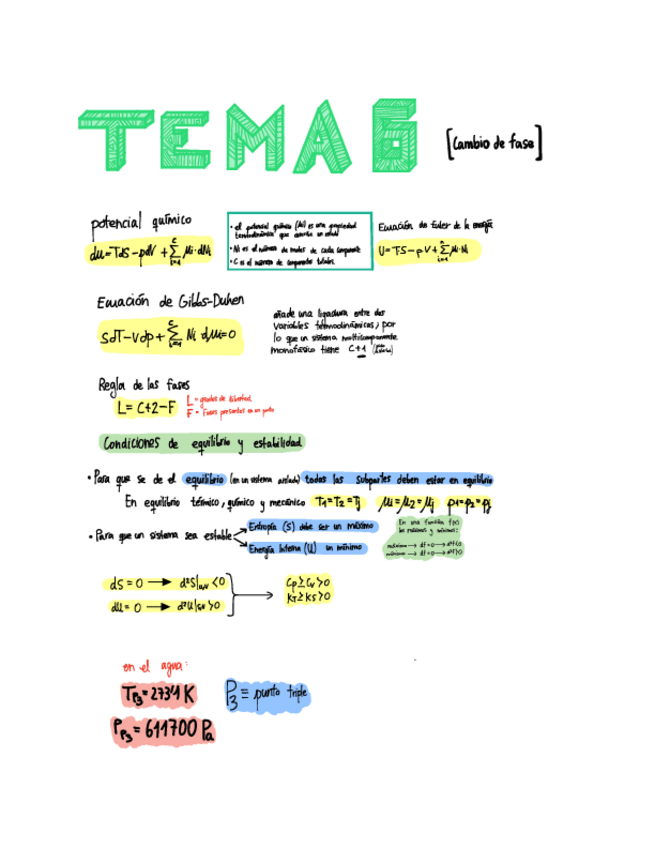 TEMA 6
[Cambio de fase]
potencial químico
du=TdS-pdV+∑ᶜᵢ₌₁ μi·dNi
• el potencial químico (μi) es una propiedad
termodinámica que
• Ni es el número de moles de cada componente
• C es el número de componentes totales.
Ecuación de Euler de la energía
U=TS-pV+∑ μi·Ni
Ecuación de Gibbs-Duhem
SdT-Vdp+∑ᶜᵢ₌₁ Ni dμi=0
añade una ligadura entre las
variables termodinámicas, por
lo que un sistema multicomponente
monofásico tiene C+1
Regla de las fases
L=C+2-F
L=grados de libertad
F= Fases presentes en un punto
Condiciones de equilibrio y estabilidad
• Para que se de el equilibrio (en un sistema aislado) todas las subpartes deben estar en equilibrio
En equilibrio térmico, químico y mecánico T₁=T₂=Tj μ₁=μ₂=μj p₁=p₂=pj
• Para que un sistema sea estable
Entropía (S) debe ser un máximo
Energía Interna (U) un mínimo
En una función f(x)
los máximos y mínimos:
máximo → df=0 → d²f<0
mínimo → df=0 → d²f>0
dS=0 → d²S|u,v<0
dU=0 → d²U|s,v>0
Cp≥Cv>0
KT≥KS>0
en el agua:
Tp₃=273'1 K
P₃ ≡ punto triple
Pp₃=611'700 Pa